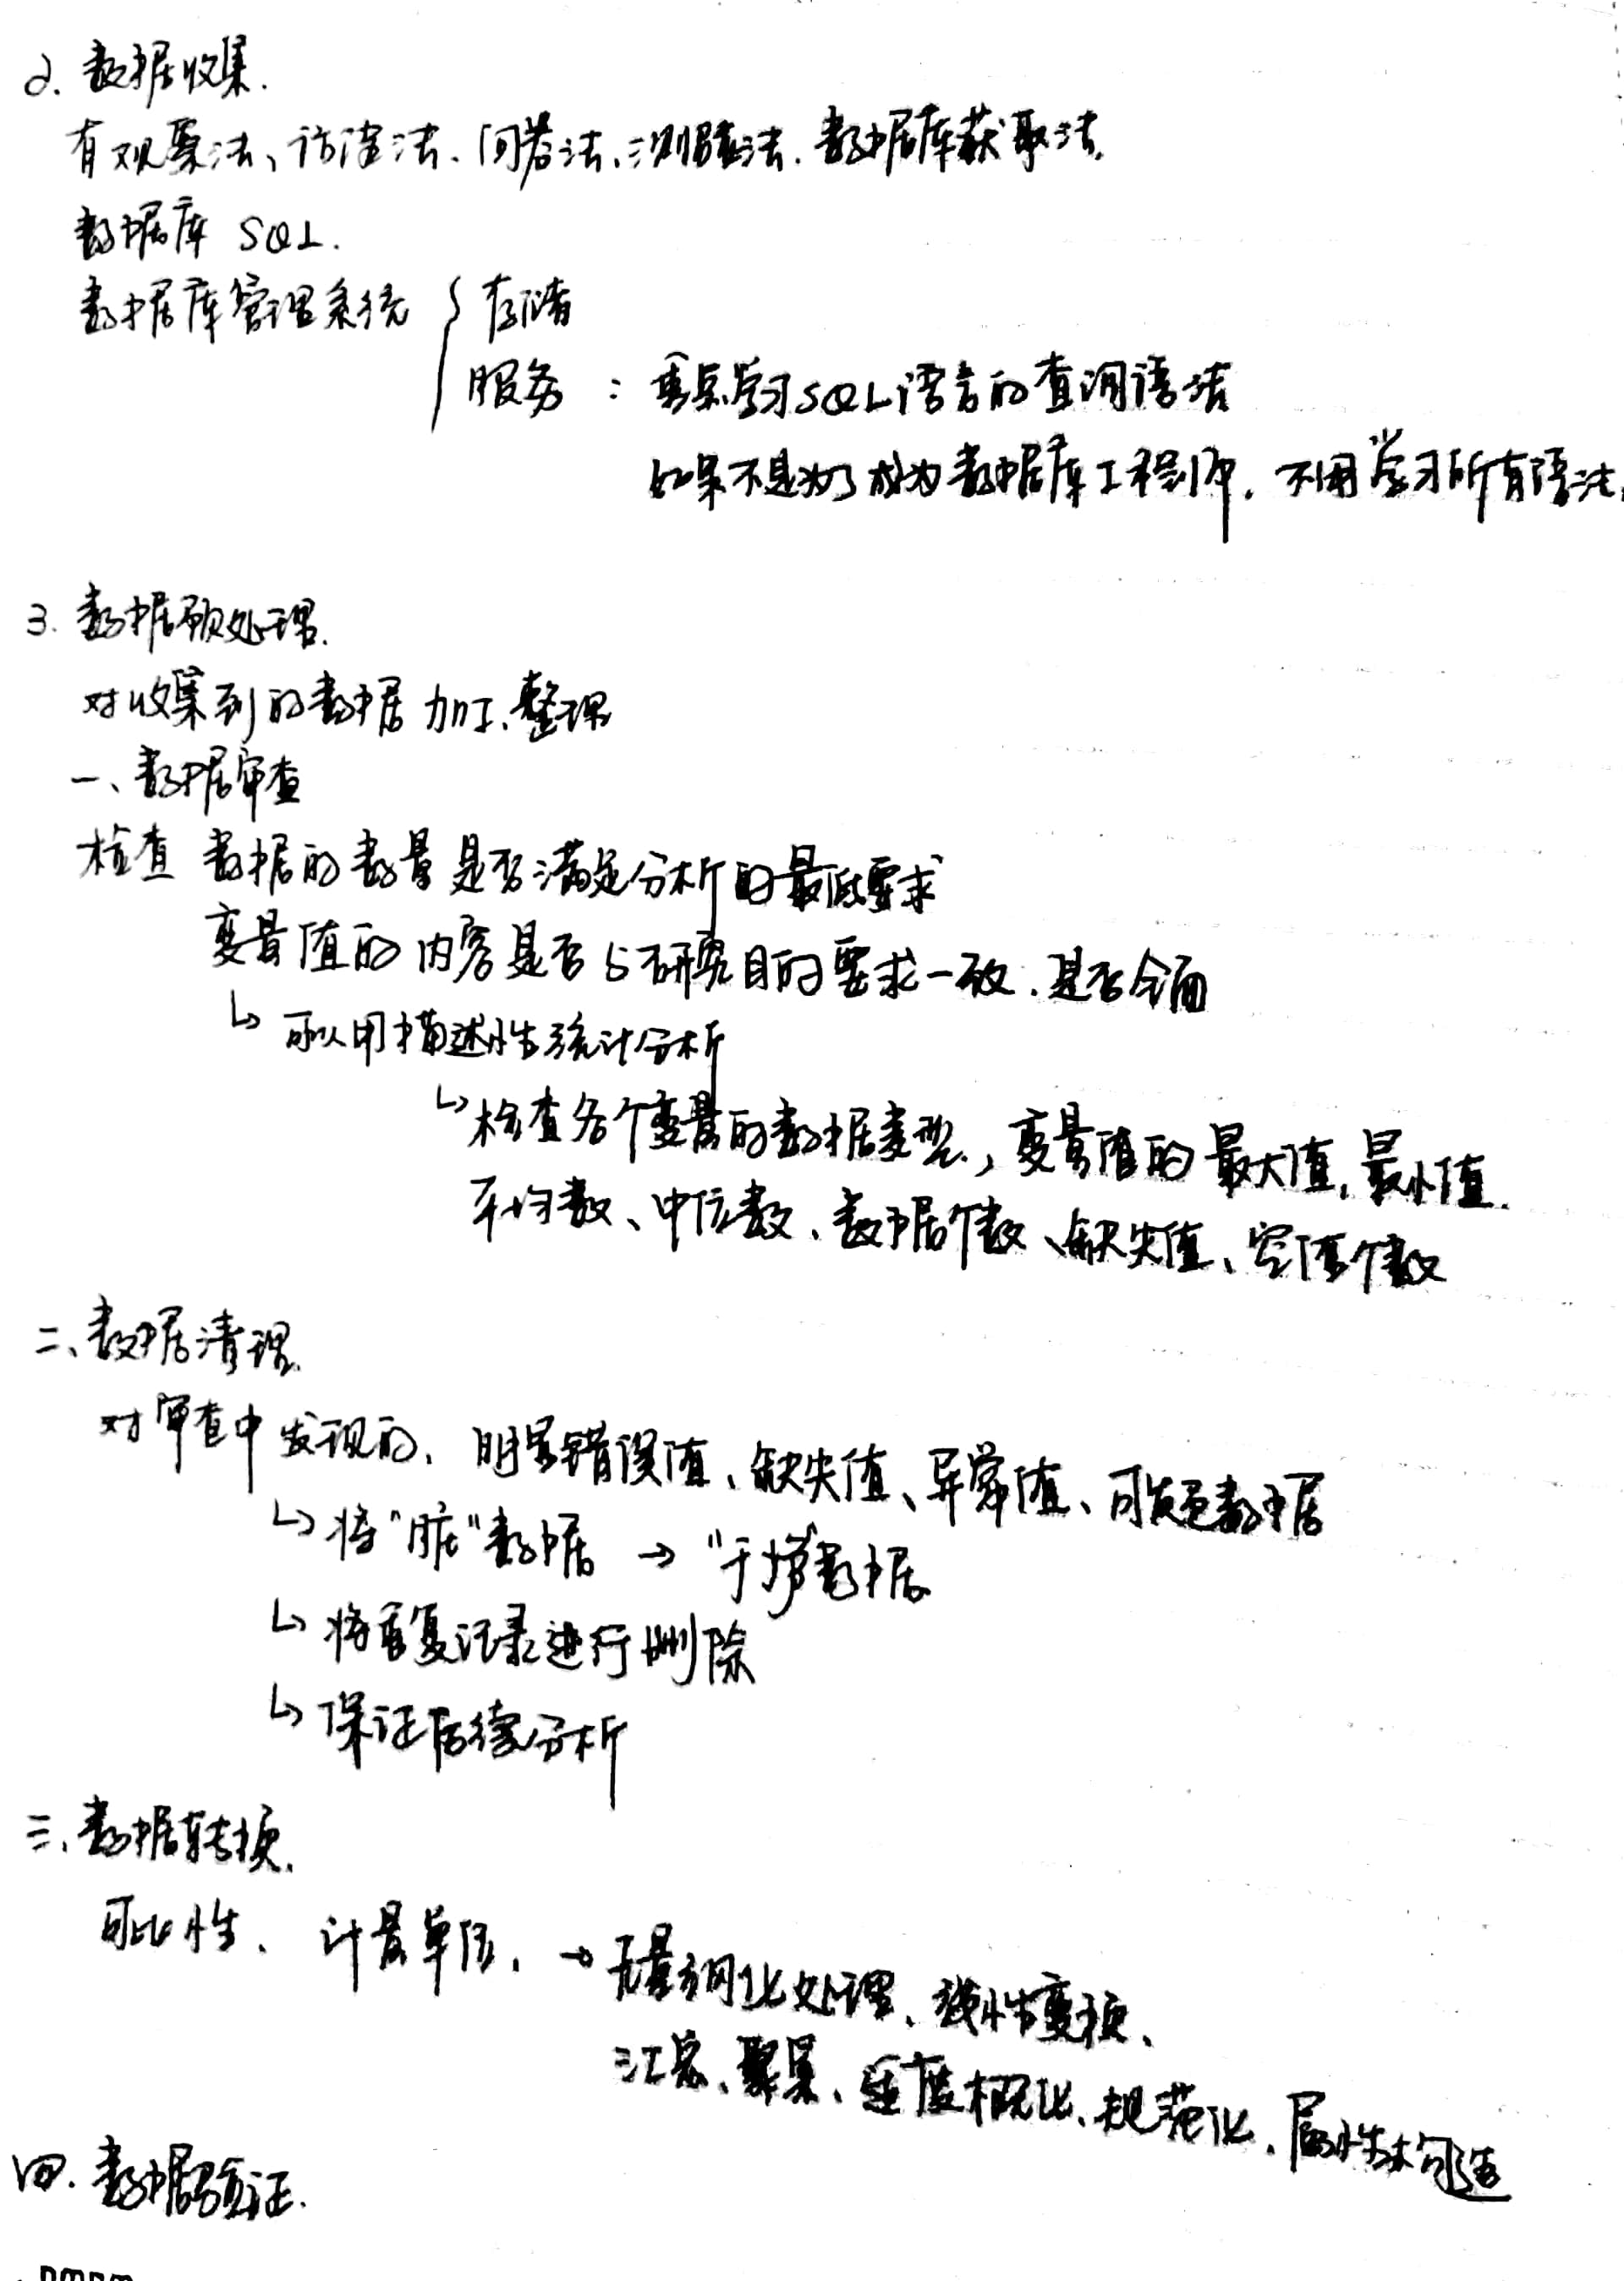 2. 数据收集.
有观察法、访谈法、问卷法、测验法、数据库获取法.
数据库 SQL.
数据库管理系统 { 存储
服务 : 重点学习SQL语言的查询语法
如果不是为了成为数据库工程师, 不用学习所有语法,
3. 数据预处理.
对收集到的数据加工、整理
一、数据审查
检查 数据的数量是否满足分析的最低要求
变量值的内容是否与研究目的要求一致. 是否全面
↳ 可以用描述性统计分析
↳ 检查各个变量的数据类型, 变量值的最大值, 最小值.
平均数、中位数、数据个数、缺失值、空值个数
二、数据清理.
对审查中发现的、明显错误值、缺失值、异常值、可疑数据
↳ 将"脏"数据 → "干净"数据
↳ 将重复记录进行删除
↳ 保证后续分析
三、数据转换.
可比性、计量单位, → 无量纲化处理、线性变换、
汇总、聚集、 概化、规范化、属性构造
四. 数据验证.